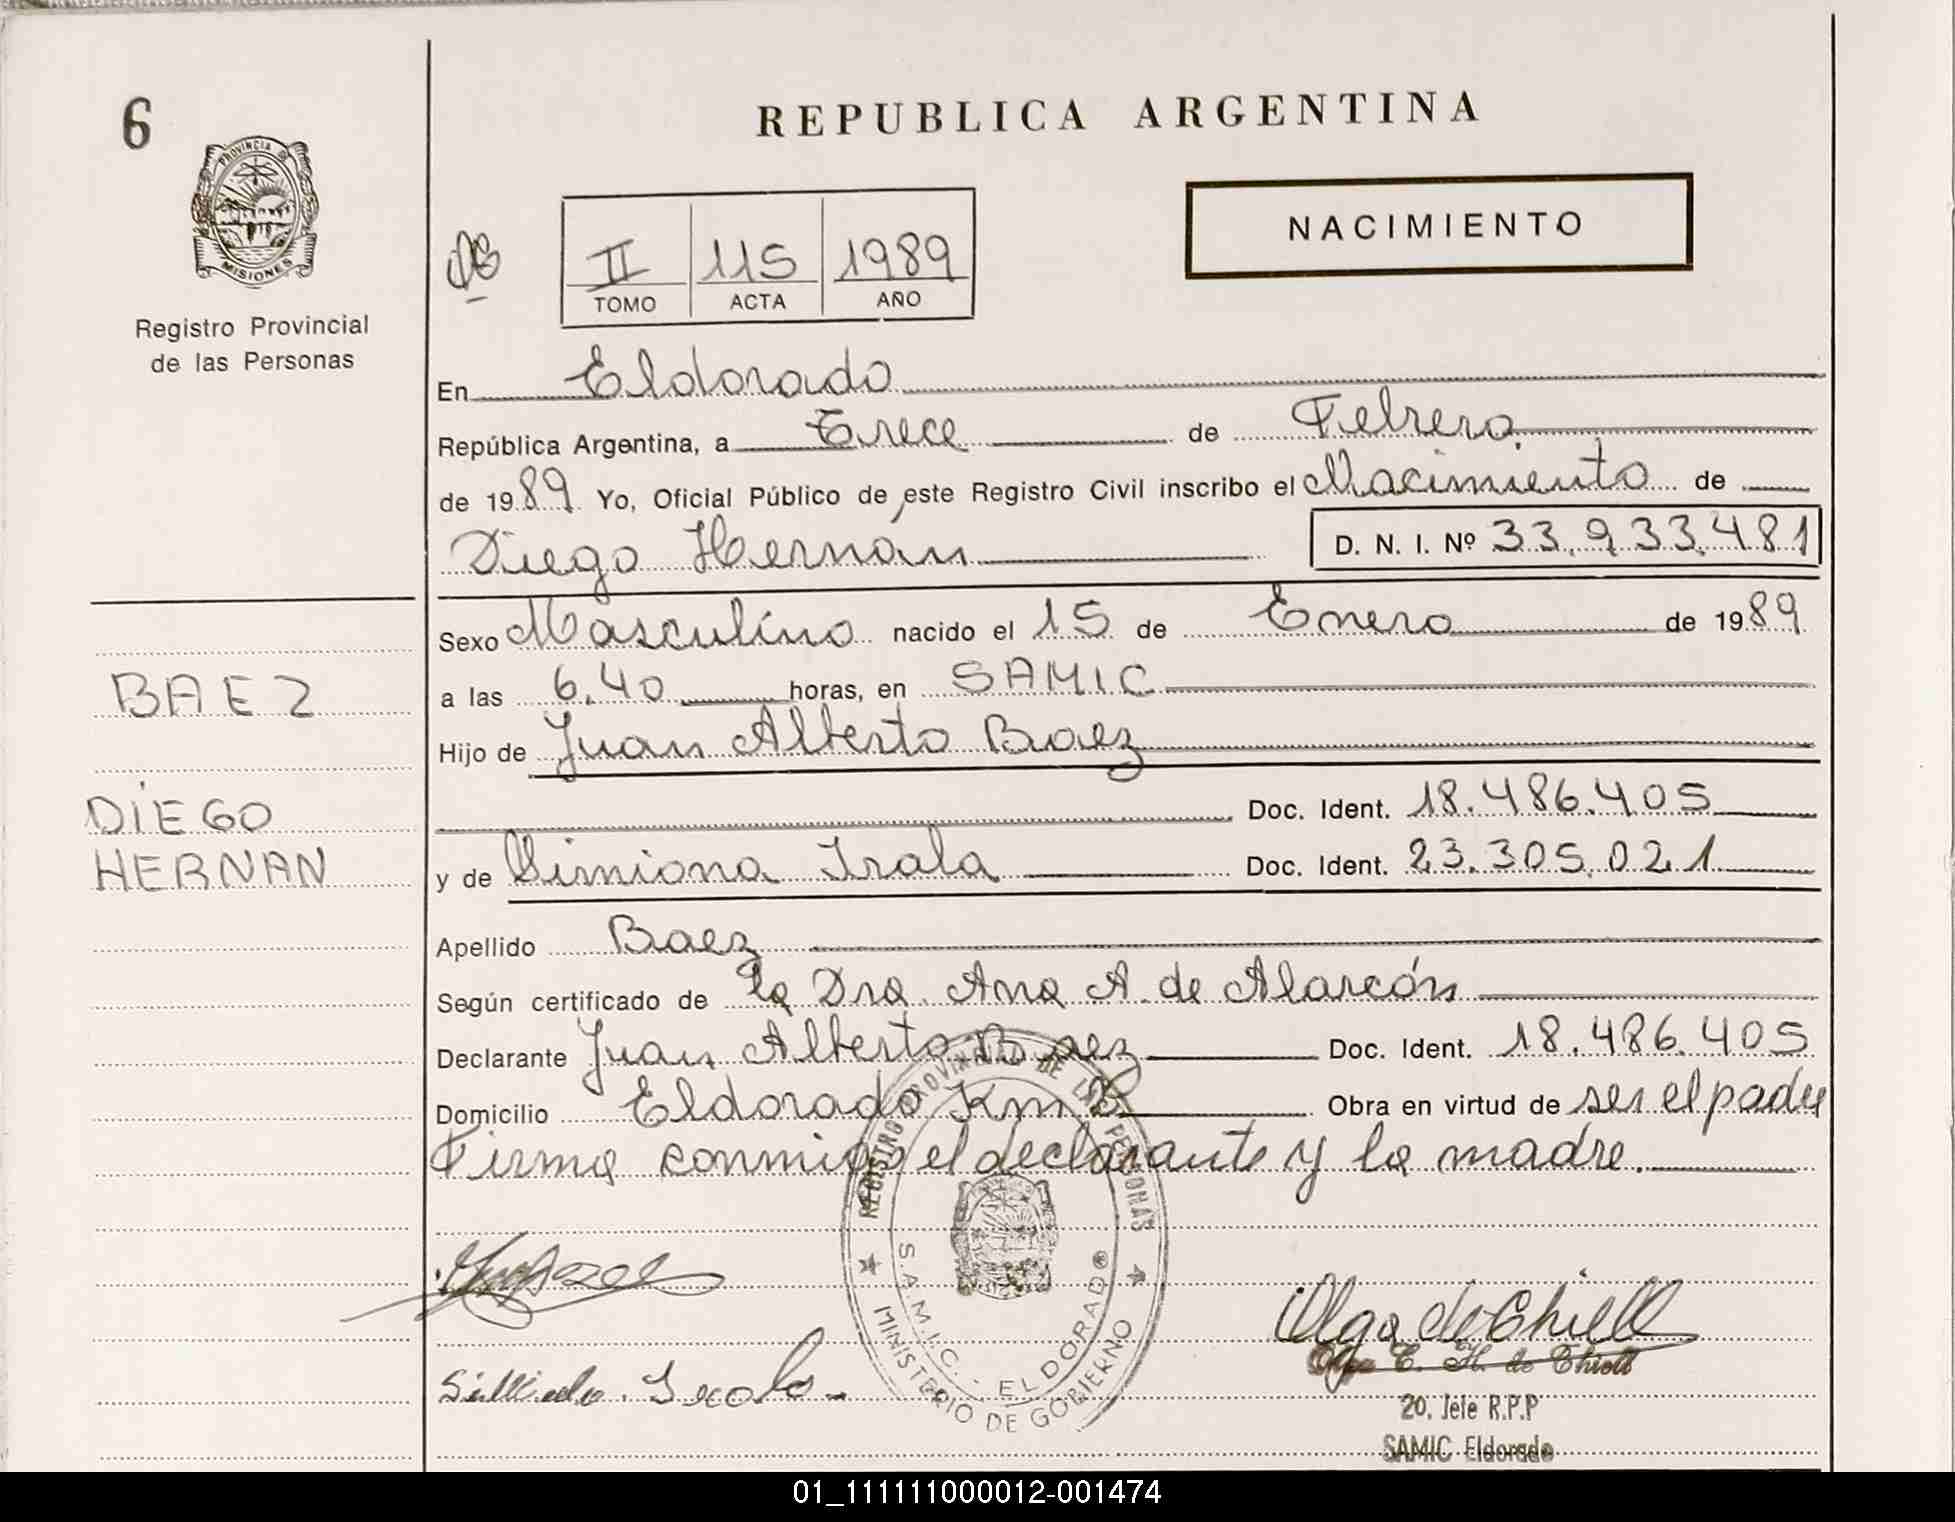 6
REPUBLICA ARGENTINA
PROVINCIA DE
MISIONES
Registro Provincial
de las Personas
NACIMIENTO
II 115 1989
TOMO ACTA AÑO
En Eldorado
República Argentina, a Trece de Febrero
de 1989 Yo, Oficial Público de este Registro Civil inscribo el Nacimiento de
Diego Hernán D. N. I. Nº 33.933.481
Sexo Masculino nacido el 15 de Enero de 1989
a las 6.40 horas, en SAMIC
Hijo de Juan Alberto Baez
Doc. Ident. 18.486.405
y de Simiona Irala Doc. Ident. 23.305.021
Apellido Baez
Según certificado de la Dra. Ana A. de Alarcón
Declarante Juan Alberto Baez Doc. Ident. 18.486.405
Domicilio Eldorado Km Obra en virtud de ser el padre
Firma conmigo el declarante y la madre.
BAEZ
DIEGO
HERNAN
REGISTRO PROVINCIAL DE LAS PERSONAS
S.A.M.I.C. - ELDORADO
MINISTERIO DE GOBIERNO
Irala
Olga de Chiell
Olga E. H. de Thiell
20. Jefe R.P.P
SAMIC Eldorado
01_111111000012-001474